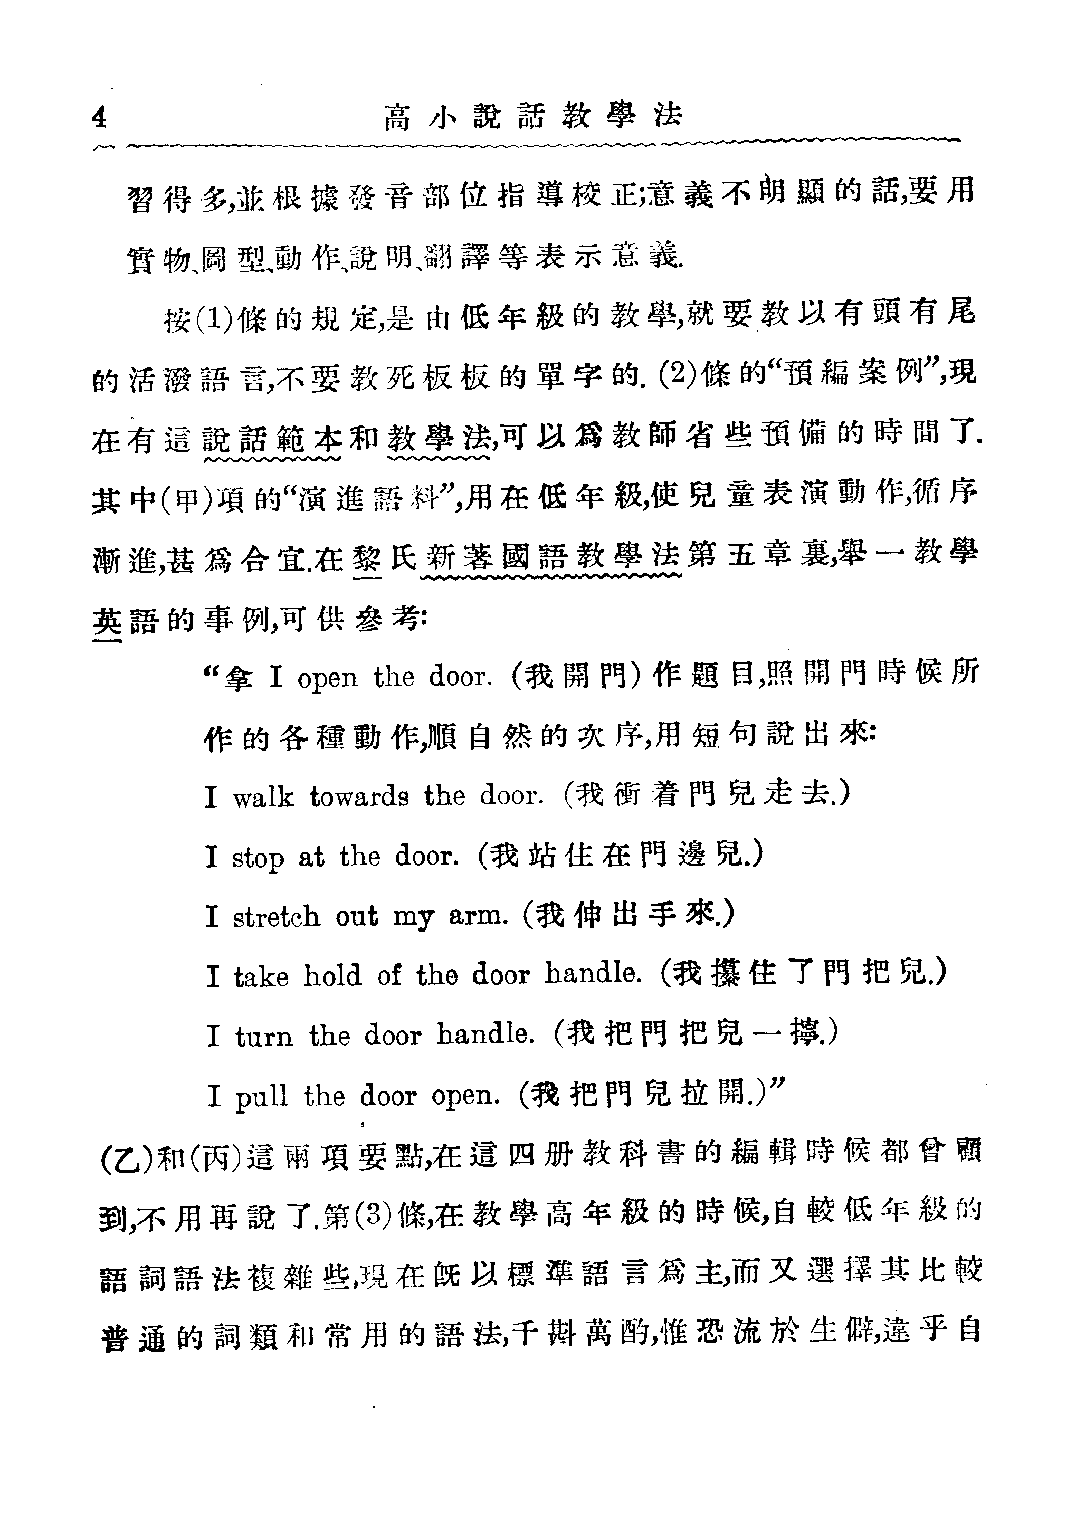 4 高小說話教學法
習得多,並根據發音部位指導校正;意義不明顯的話,要用
實物、圖型、動作、說明、翻譯等表示意義.
按(1)條的規定,是由低年級的教學,就要教以有頭有尾
的活潑語言,不要教死板板的單字的. (2)條的“預編案例”,現
在有這說話範本和教學法,可以爲教師省些預備的時間了.
其中(甲)項的“演進語料”,用在低年級,使兒童表演動作,循序
漸進,甚爲合宜.在黎氏新著國語教學法第五章裏,舉一教學
英語的事例,可供參考:
“拿 I open the door. (我開門)作題目,照開門時候所
作的各種動作,順自然的次序,用短句說出來:
I walk towards the door. (我衝着門兒走去.)
I stop at the door. (我站住在門邊兒.)
I stretch out my arm. (我伸出手來.)
I take hold of the door handle. (我攥住了門把兒.)
I turn the door handle. (我把門把兒一擰.)
I pull the door open. (我把門兒拉開.)”
(乙)和(丙)這兩項要點,在這四册教科書的編輯時候都曾顧
到,不用再說了.第(3)條,在教學高年級的時候,自較低年級的
語詞語法複雜些,現在旣以標準語言爲主,而又選擇其比較
普通的詞類和常用的語法,千斟萬酌,惟恐流於生僻,違乎自